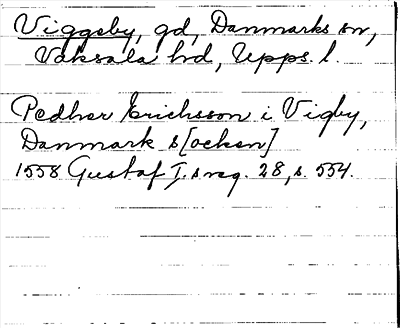 Viggeby, gd, Danmarks sn,
Vaksala hd, Upps. l.
Pedher Erichsson i Vigby,
Danmark s[ocken]
1558 Gustaf I:s reg. 28, s. 554.